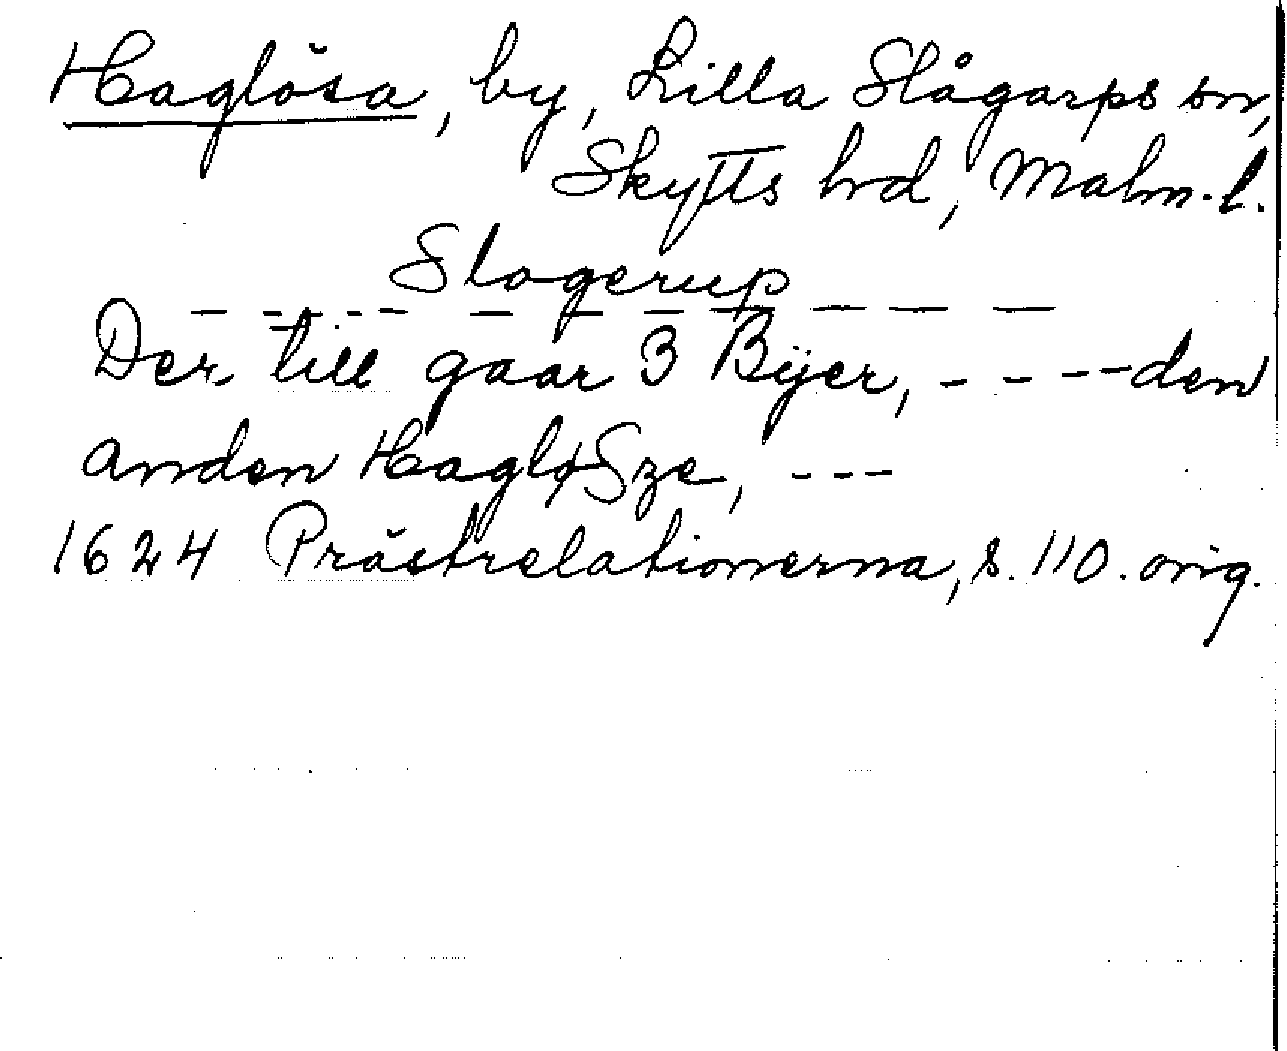 Haglösa, by, Lilla Slågarps sn,
Skytts hrd, Malm. l.
Slogerup
– – – – – – – – – – – –
Der till gaar 3 Bÿer, - - - - den
anden HagløSze, - - -
1624 Prästrelationerna, s. 110. orig.